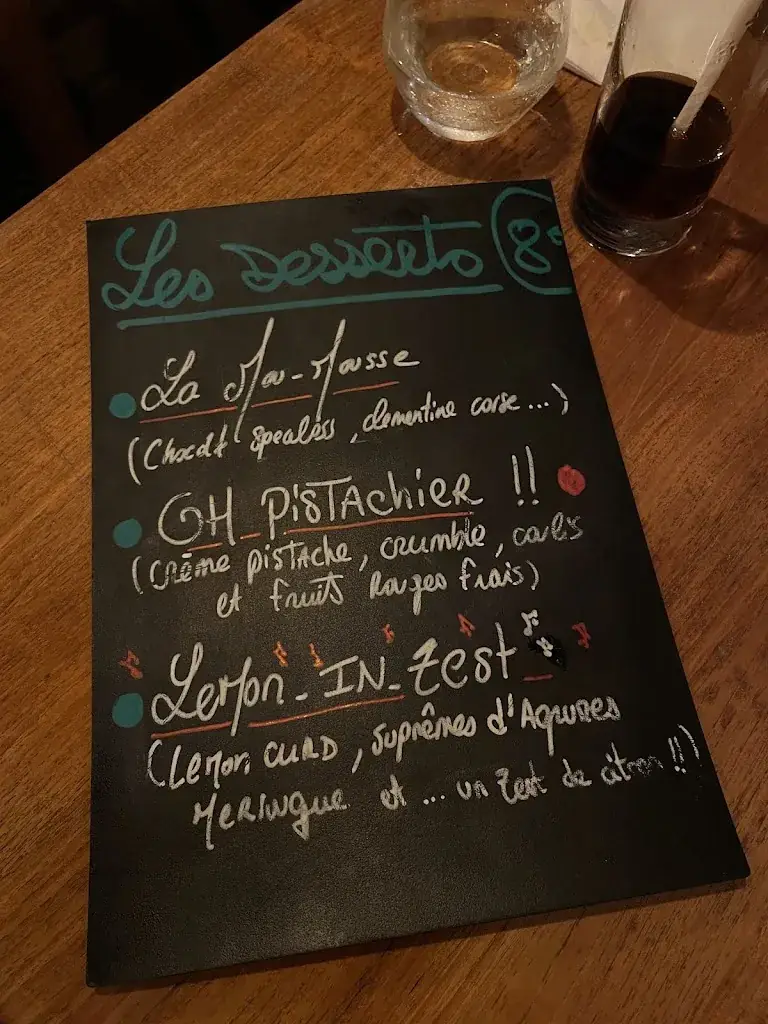 Les Desserts 8€
La Mou-Mousse
(Chocolat speculoss, clementine corse...)
GH PiSTAchiER !!
(Crème PiSTAche, crumble, coulis
et fruits Rouges frais)
LeMon-IN-Zest
(LeMon CURD, suprêmes d'Agrumes
MERiNgue et ... un Zest de citron !!)